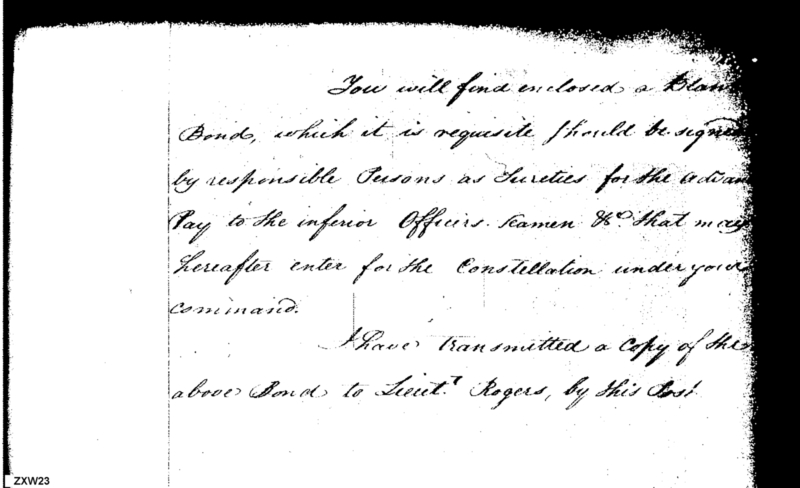 You will find enclosed a Blan
Bond, which it is requisite should be signe
by responsible Persons as Sureties for the advan
Pay to the inferior Officers. Seamen &c. that may
hereafter enter for the Constellation under your
command.
I have transmitted a Copy of the
above Bond to Lieut.t Rogers, by this Post
ZXW23